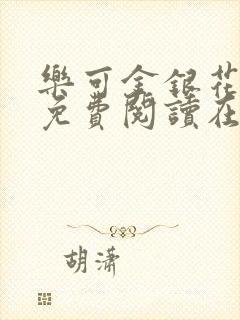 樂可金銀花
免費閱讀在
胡潇